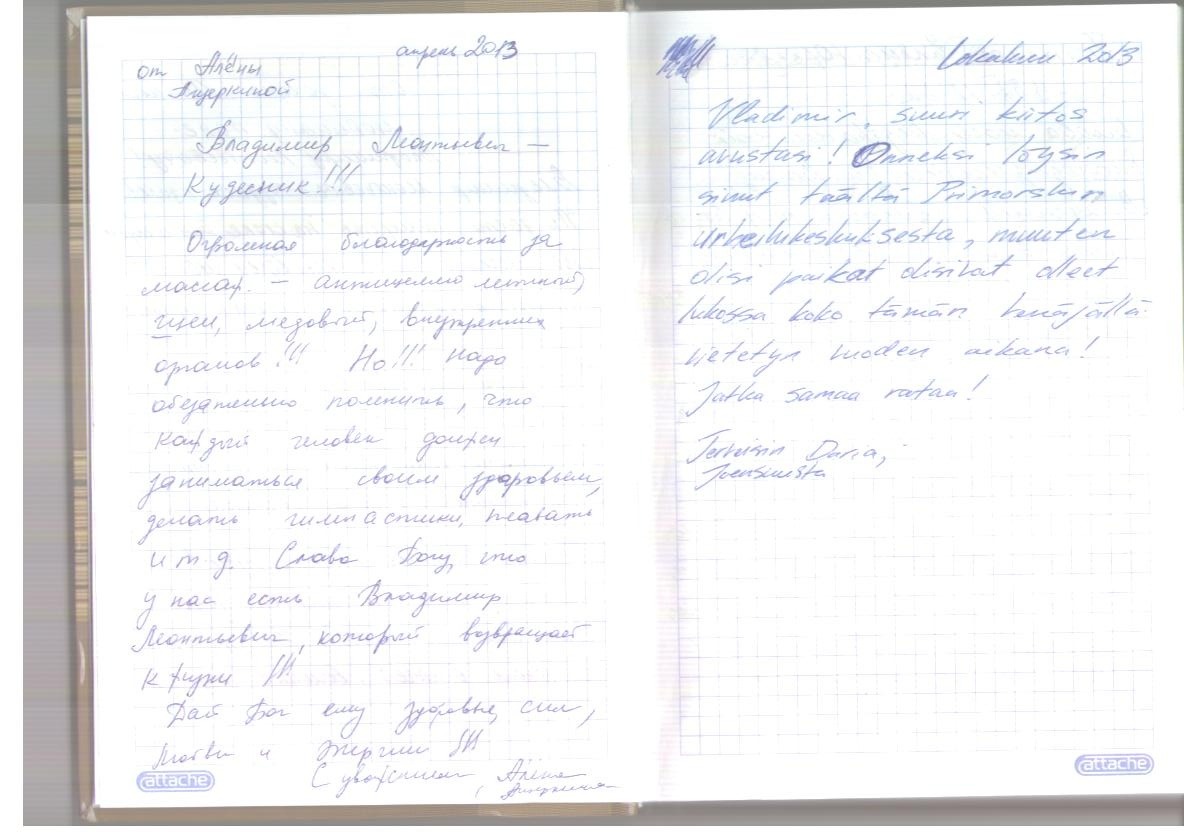 апрель 2013
от Алёны
Ащеркиной
Владимир Леонтьевич —
Кудесник!!!
Огромная благодарность за
массаж. — антицеллюлитный,
шеи, медовый, внутренних
органов!!! Но!!! Надо
обезательно помнить, что
каждый человек должен
заниматься своим здоровьем,
делать гимнастики, плавать
и т д. Слава Богу, что
у нас есть Владимир
Леонтьевич, который возвращает
к жизни !!!
Дай Бог ему здоровье, сил,
Любви и Энергии !!!
С уважением, Алёна
attache
Lokakuu 2013
Vladimir, suuri kiitos
avustasi! Onneksi löysin
sinut täältä Primorskin
urheilukeskuksesta, muuten
olisi paikat olisivat olleet
lukossa koko tämän Venäjällä
vietetyn vuoden aikana!
Jatka samaa rataa!
Terveisin Daria,
Joensuusta
attache